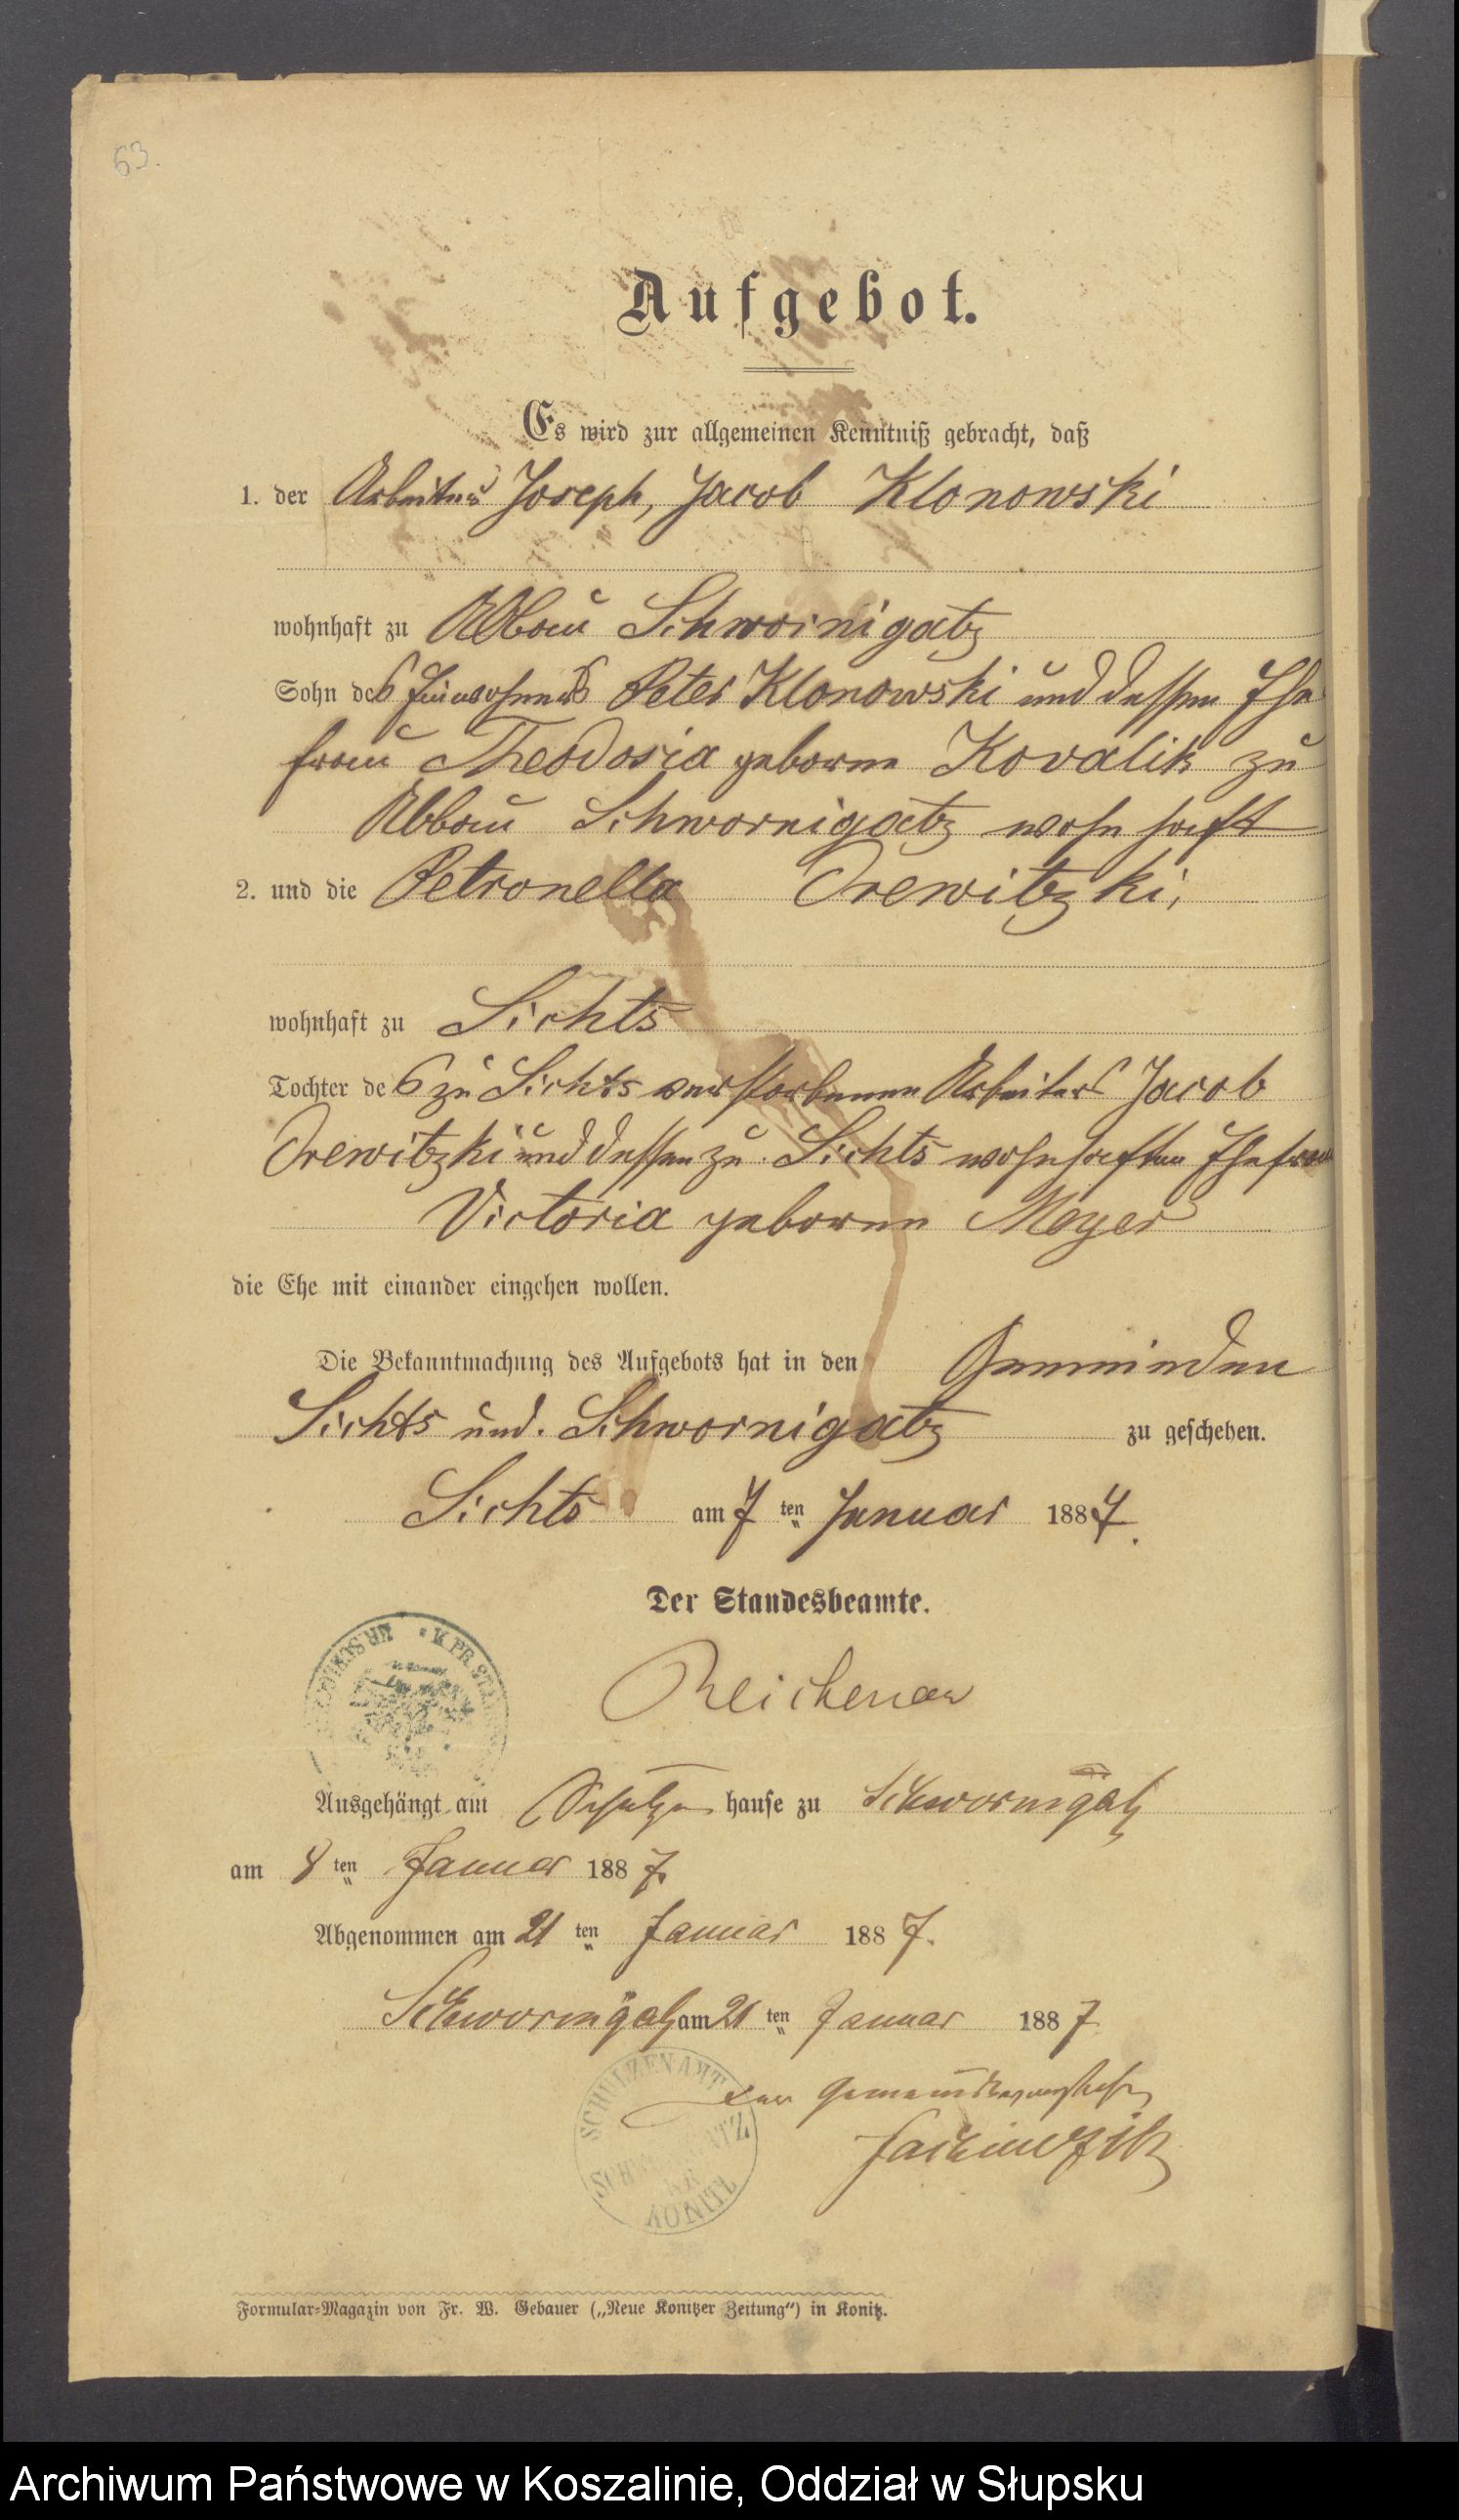 63.
Aufgebot.
Es wird zur allgemeinen Kenntniß gebracht, daß
1. der Arbeiter Joseph, Jacob Klonowski
wohnhaft zu Abbau Schwornigatz
Sohn des Einwohners Peter Klonowski und dessen Ehe
frau Theodosia geborne Kovalik zu
Abbau Schwornigatz wohnhaft
2. und die Petronella Orewitzki,
wohnhaft zu Sichts
Tochter des zu Sichts verstorbenen Arbeiters Jacob
Orewitzki und dessen zu Sichts wohnhaften Ehefrau
Victoria geborne Meyer
die Ehe mit einander eingehen wollen.
Die Bekanntmachung des Aufgebots hat in den Gemeinden
Sichts und. Schwornigatz zu geschehen.
Sichts am 7 ten Januar 1887.
Der Standesbeamte.
K. PR.
Reichenau
Ausgehängt am Schulzen hause zu Schwornigatz
am 8 ten Januar 1887.
Abgenommen am 21 ten Januar 1887.
Schwornigatz am 21 ten Januar 1887
SCHULZENAMT
KONITZ
Der Gemeindevorsteher
Formular-Magazin von Fr. W. Gebauer („Neue Konitzer Zeitung“) in Konitz.
Archiwum Państwowe w Koszalinie, Oddział w Słupsku